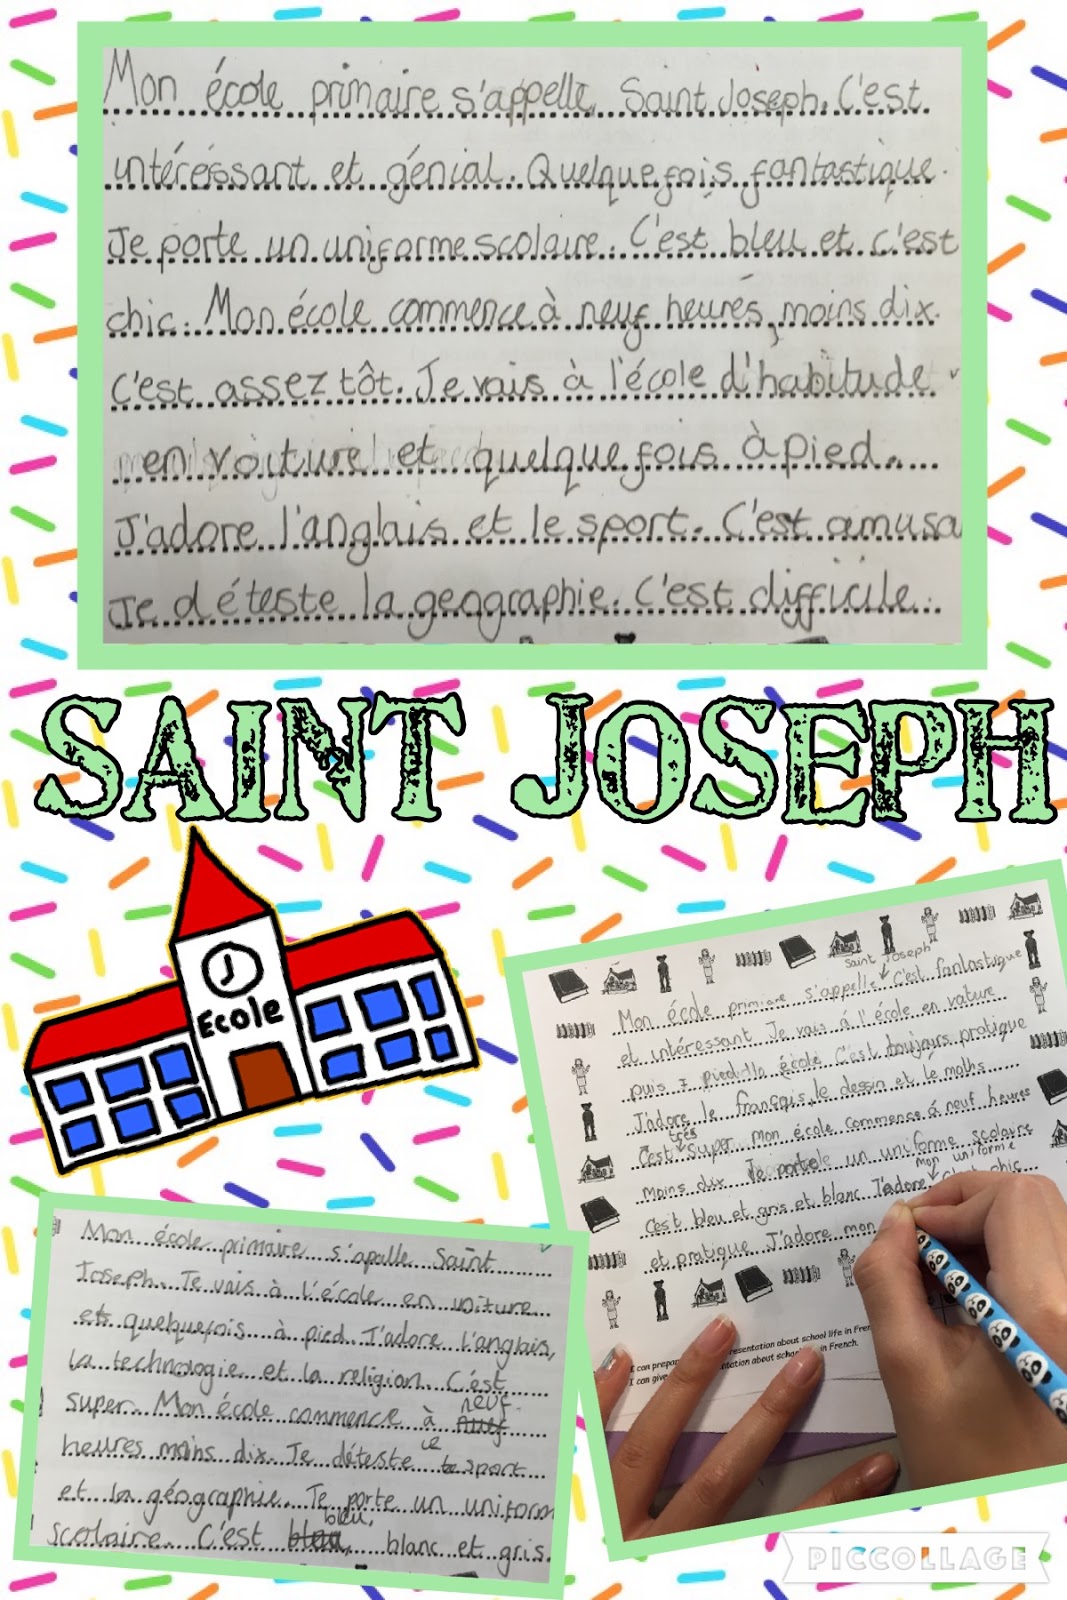 Mon école primaire s'appelle Saint Joseph. C'est
intéréssant et génial. Quelquefois fantastique.
Je porte un uniforme scolaire. C'est bleu et c'est
chic. Mon école commence à neuf heures, moins dix.
C'est assez tôt. Je vais à l'école d'habitude
en voiture et quelquefois à pied.
J'adore l'anglais et le sport. C'est amusa
Je déteste la geographie. C'est difficile.
SAINT JOSEPH
Ecole
Saint Joseph
Mon école primiare s'appelle C'est fantastique
et intéressant Je vais á l'école en voture
puis pied école C'est toujours pratique
J'adore le français, le dessin et le maths
très
C'est super. Mon école commence á neuf heures
moins dix Je porte un uniforme scolaire
mon uniforme
C'est bleu et gris et blanc J'adore C'est chic
et pratique J'adore mon
I can prepar resentation about school life in Fren
I can give ntation about school in French.
Mon école primaire s'apalle Saint
Joseph. Je vais à l'école en voiture
et quelquefois à pied. J'adore l'anglais,
la technologie et la religion. C'est
neuf
super. Mon école commence à
le
heures moins dix. Je déteste sport
et la géographie. Je porte un uniform
bleu,
scolaire. C'est bleu, blanc et gris.
PICCOLLAGE